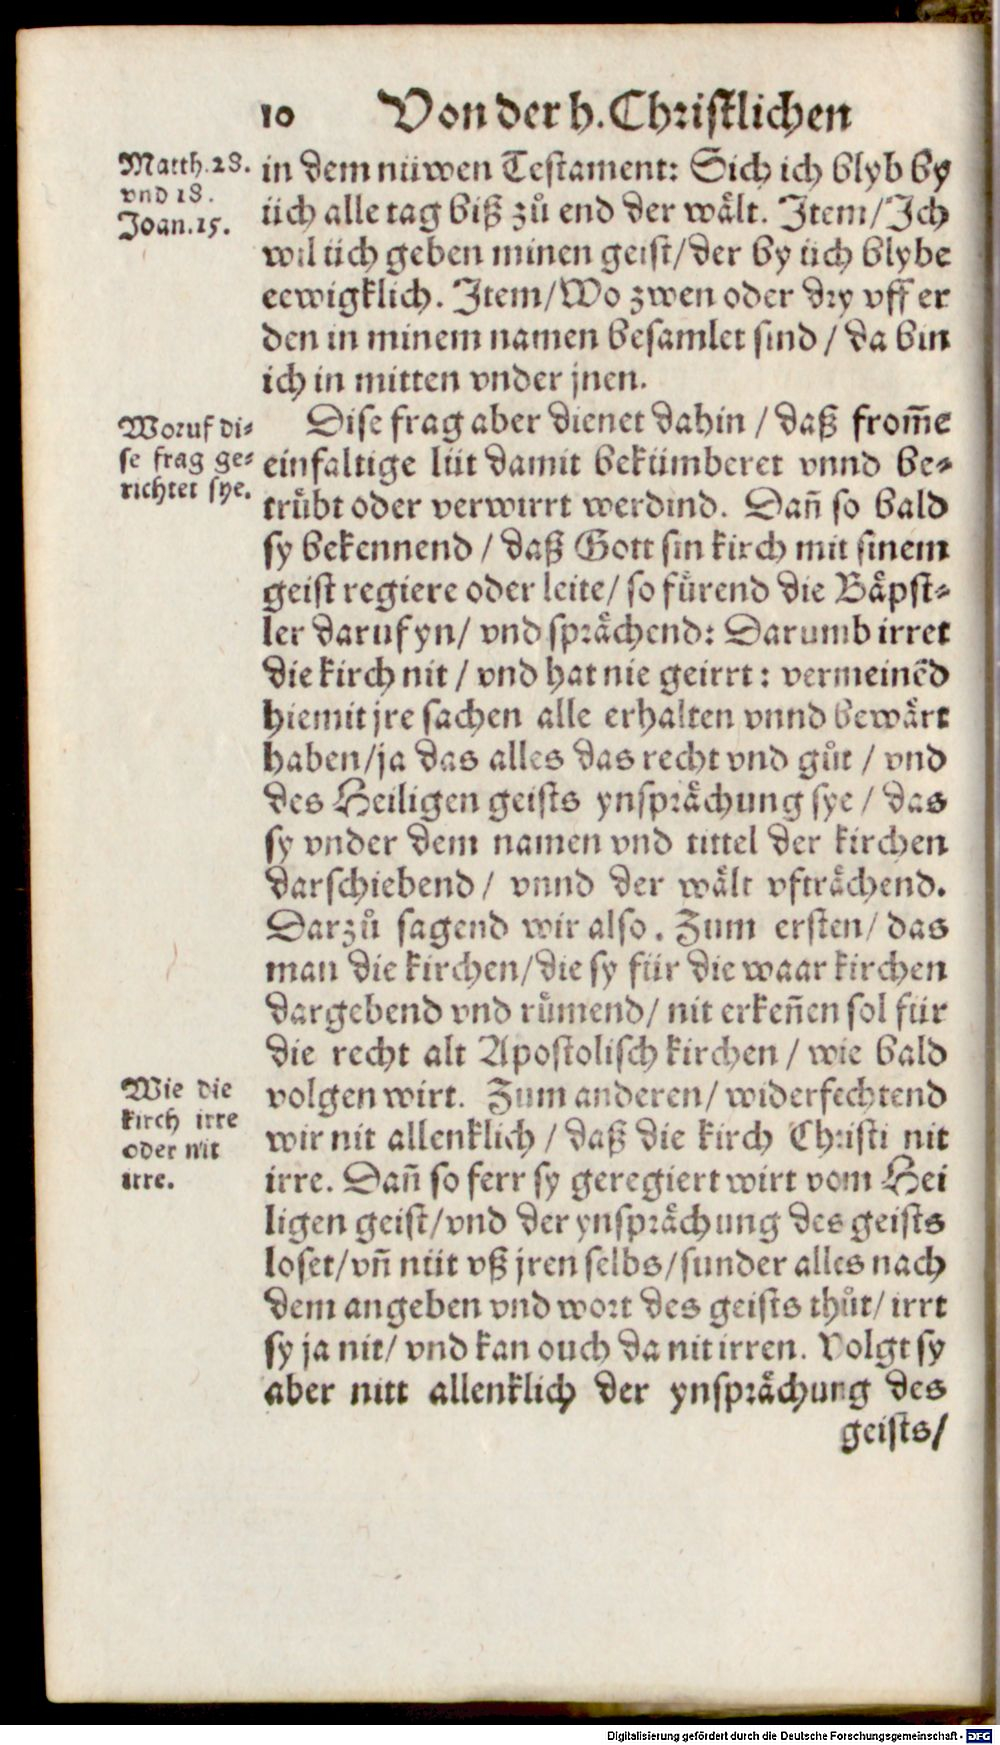 10 Von der h. Christlichen
Matth. 28.
vnd 18.
Joan. 15.
in dem nüwen Testament: Sich ich blyb by
üch alle tag biß zů end der wält. Item/ Ich
wil üch geben minen geist/ der by üch blybe
eewigklich. Item/ Wo zwen oder dry vff er
den in minem namen besamlet sind / da bin
ich in mitten vnder jnen.
Woruf di-
se frag ge-
richtet sye.
Dise frag aber dienet dahin / daß from̃e
einfaltige lüt damit bekümberet vnnd be-
trůbt oder verwirrt werdind. Dañ so bald
sy bekennend / daß Gott sin kirch mit sinem
geist regiere oder leite/ so fůrend die Båpst-
ler daruf yn/ vnd språchend: Darumb irret
die kirch nit / vnd hat nie geirrt: vermeinẽd
hiemit jre sachen alle erhalten vnnd bewårt
haben/ ja das alles das recht vnd gůt / vnd
des Heiligen geists ynspråchung sye / das
sy vnder dem namen vnd tittel der kirchen
darschiebend / vnnd der wålt vftråchend.
Darzů sagend wir also. Zum ersten/ das
man die kirchen/ die sy für die waar kirchen
dargebend vnd růmend/ nit erkeñen sol für
die recht alt Apostolisch kirchen / wie bald
Wie die
kirch irre
oder nit
irre.
volgen wirt. Zum anderen/ widerfechtend
wir nit allenklich / daß die kirch Christi nit
irre. Dañ so ferr sy geregiert wirt vom Hei
ligen geist/ vnd der ynspråchung des geists
loset/ vñ nüt vß jren selbs/ sunder alles nach
dem angeben vnd wort des geists thůt/ irrt
sy ja nit/ vnd kan ouch da nit irren. Volgt sy
aber nitt allenklich der ynspråchung des
geists/
Digitalisierung gefördert durch die Deutsche Forschungsgemeinschaft - DFG